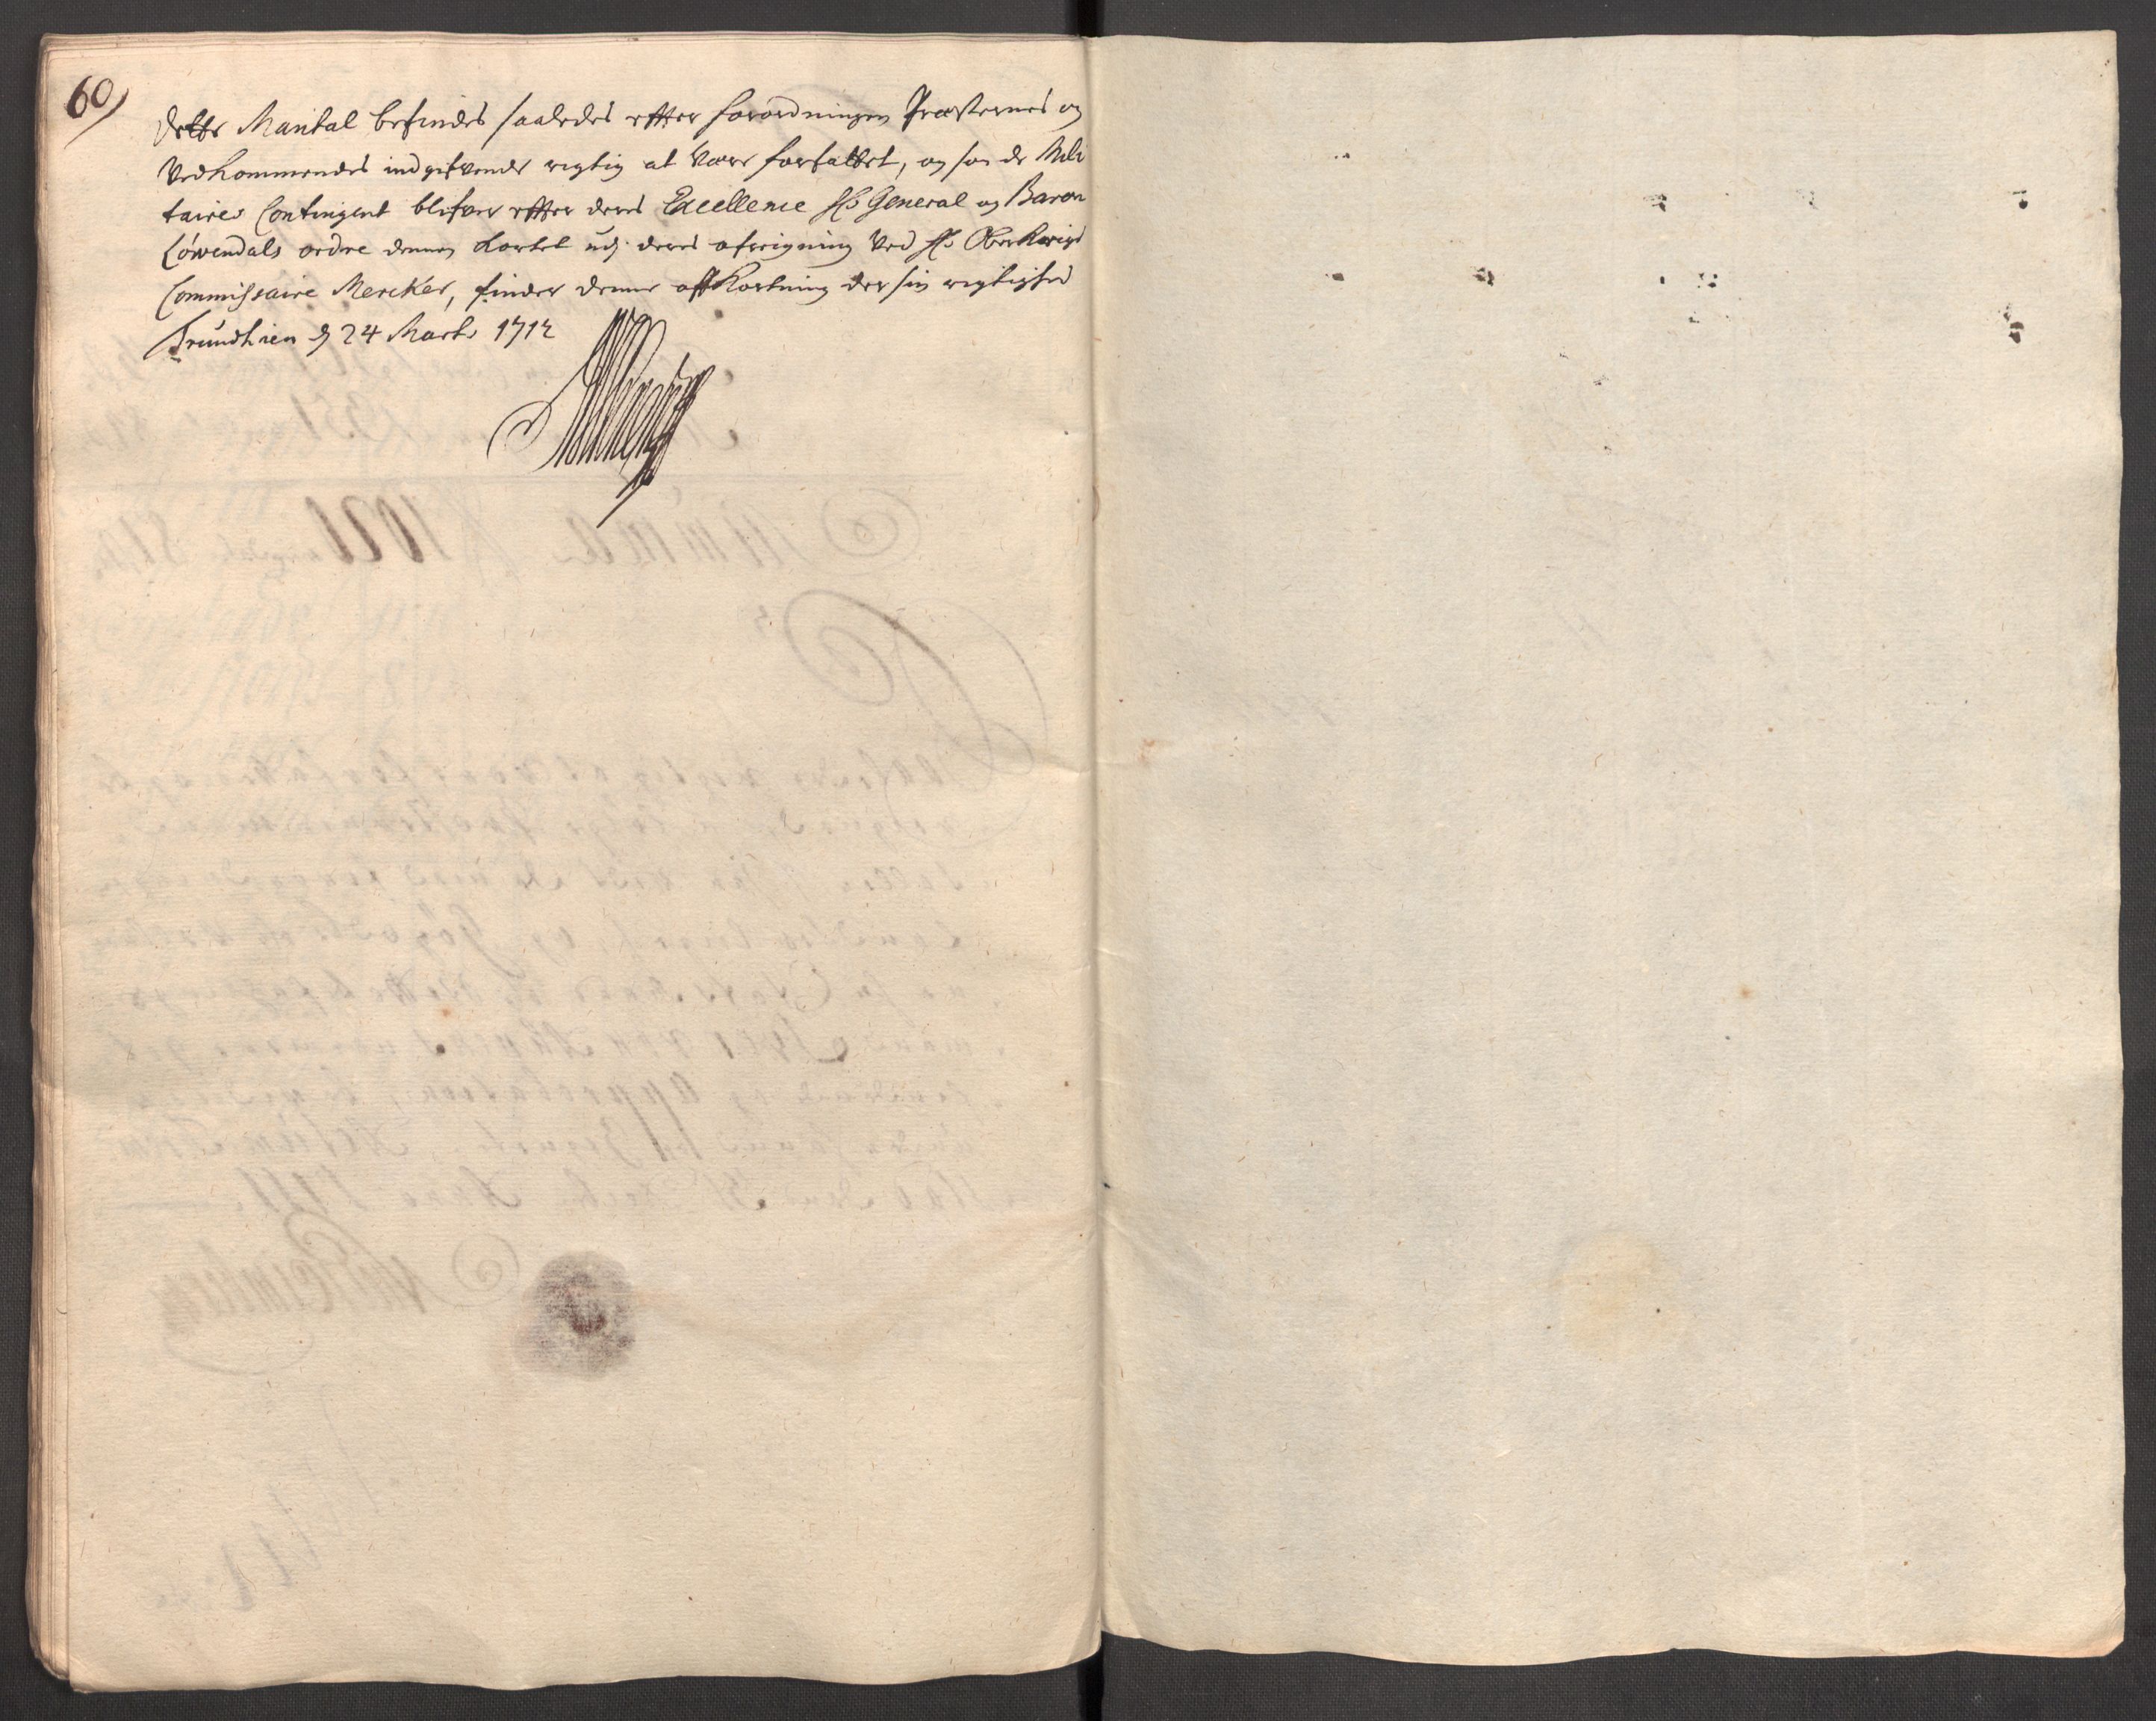 60)
Dette Mantal befindes saaledes effter forordningen Præsternes og
Vedkommendes indgifvende rigtig at være forfattet, og som de Mili
taires Contingent blifver effter deres Excellence Hr General og Baron
Löwendals ordre denem kortet udj deres afreigning Ved Hr Oberkrigs
Commissaire Mercker, finder denne affkortning der sin rigtighed
Trundhiem d 24 Marti 1712